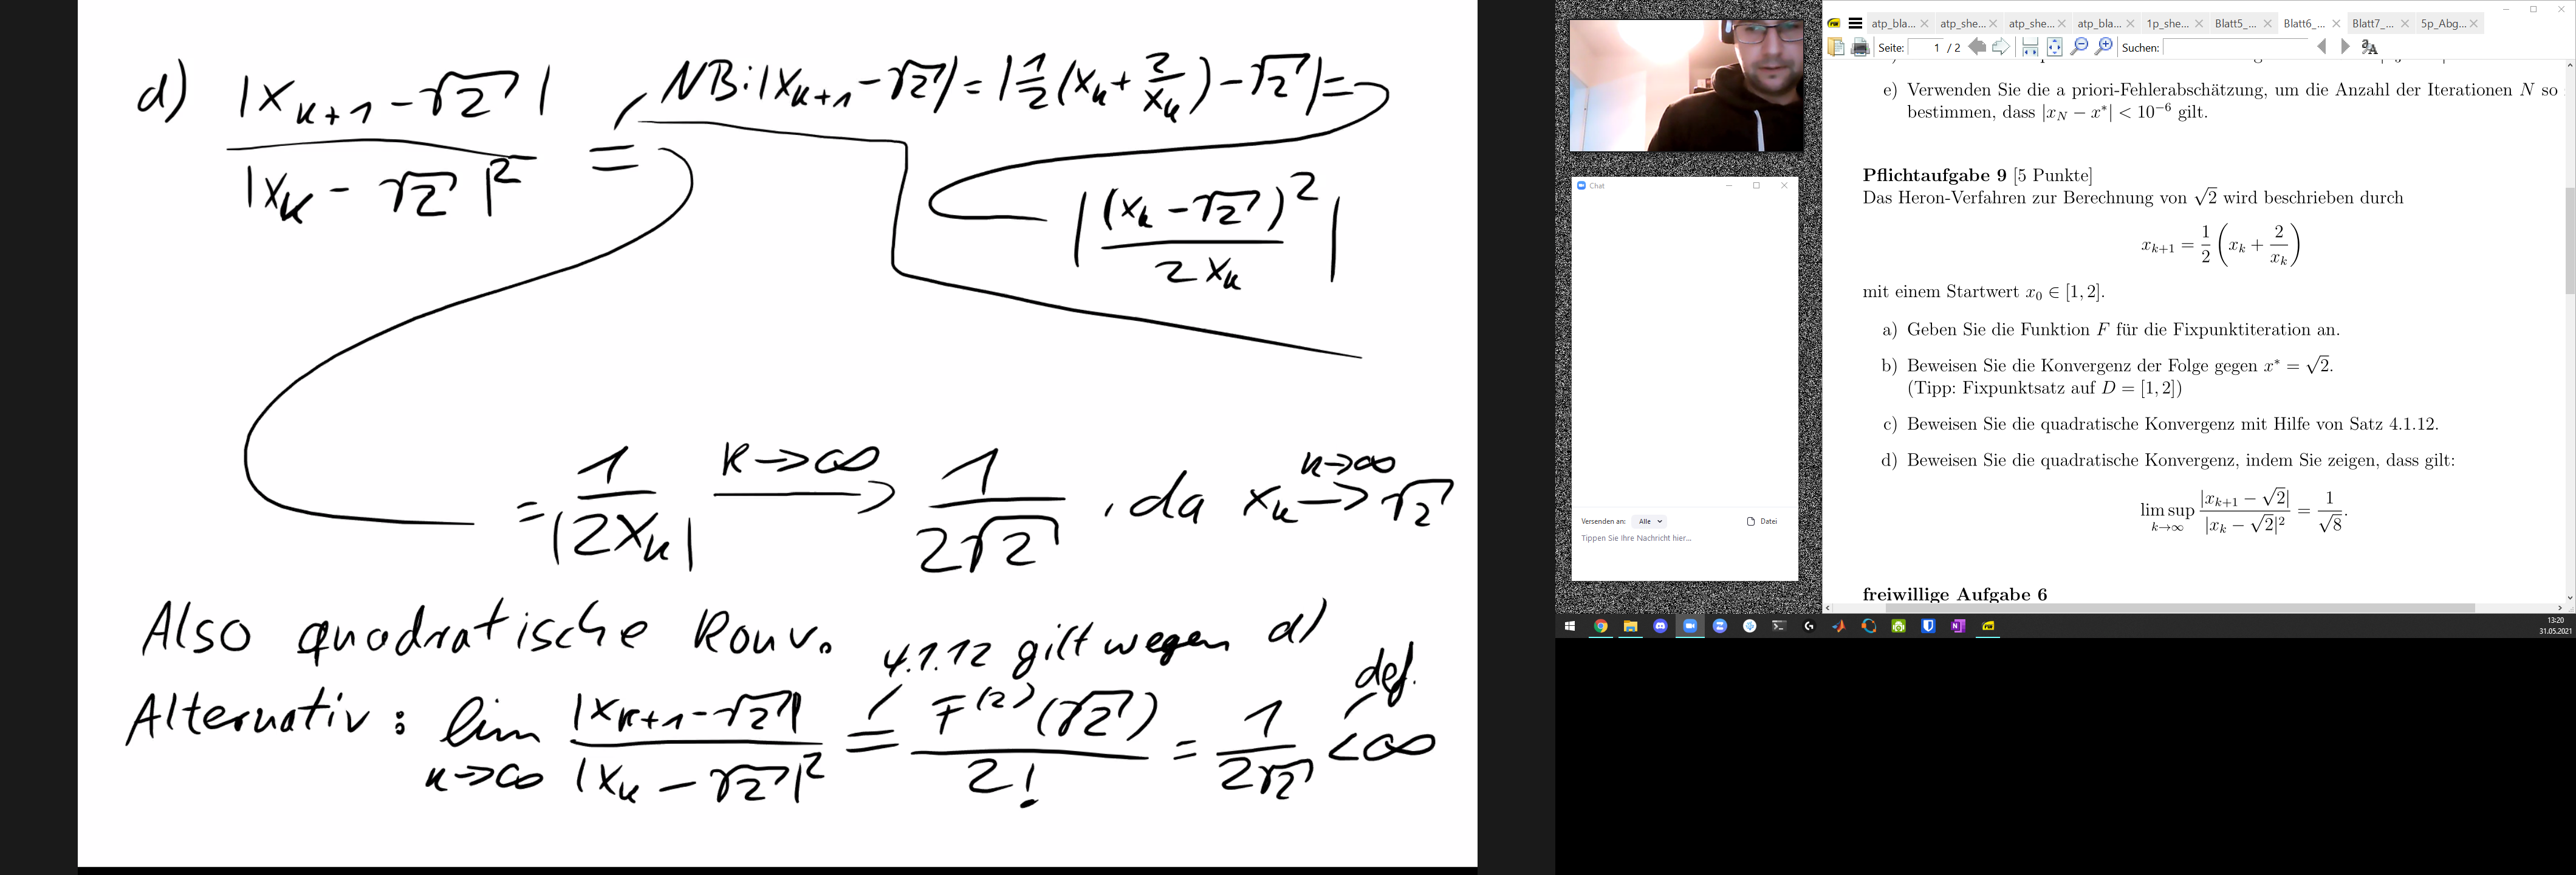 d) |x_{k+1} - √2| / |x_k - √2|² =
NB: |x_{k+1} - √2| = |1/2 (x_k + 2/x_k) - √2| =
|(x_k - √2)² / 2x_k|
= 1/|2x_k| k→∞ → 1/(2√2), da x_k k→∞ → √2
Also quadratische Konv.
4.1.12 gilt wegen d)
Alternativ: lim k→∞ |x_{k+1} - √2| / |x_k - √2|² = F^{(2)}(√2) / 2! = 1/(2√2) < ∞
def.
Chat
Versenden an: Alle Datei
Tippen Sie Ihre Nachricht hier...
atp_bla... atp_she... atp_she... atp_bla... 1p_she... Blatt5_... Blatt6_... Blatt7_... 5p_Abg...
Seite: 1 / 2 Suchen:
e) Verwenden Sie die a priori-Fehlerabschätzung, um die Anzahl der Iterationen N so
bestimmen, dass |x_N − x*| < 10^{−6} gilt.
Pflichtaufgabe 9 [5 Punkte]
Das Heron-Verfahren zur Berechnung von √2 wird beschrieben durch
x_{k+1} = 1/2 (x_k + 2/x_k)
mit einem Startwert x_0 ∈ [1, 2].
a) Geben Sie die Funktion F für die Fixpunktiteration an.
b) Beweisen Sie die Konvergenz der Folge gegen x* = √2.
(Tipp: Fixpunktsatz auf D = [1, 2])
c) Beweisen Sie die quadratische Konvergenz mit Hilfe von Satz 4.1.12.
d) Beweisen Sie die quadratische Konvergenz, indem Sie zeigen, dass gilt:
lim sup k→∞ |x_{k+1} − √2| / |x_k − √2|² = 1/√8.
freiwillige Aufgabe 6
13:20
31.05.2021